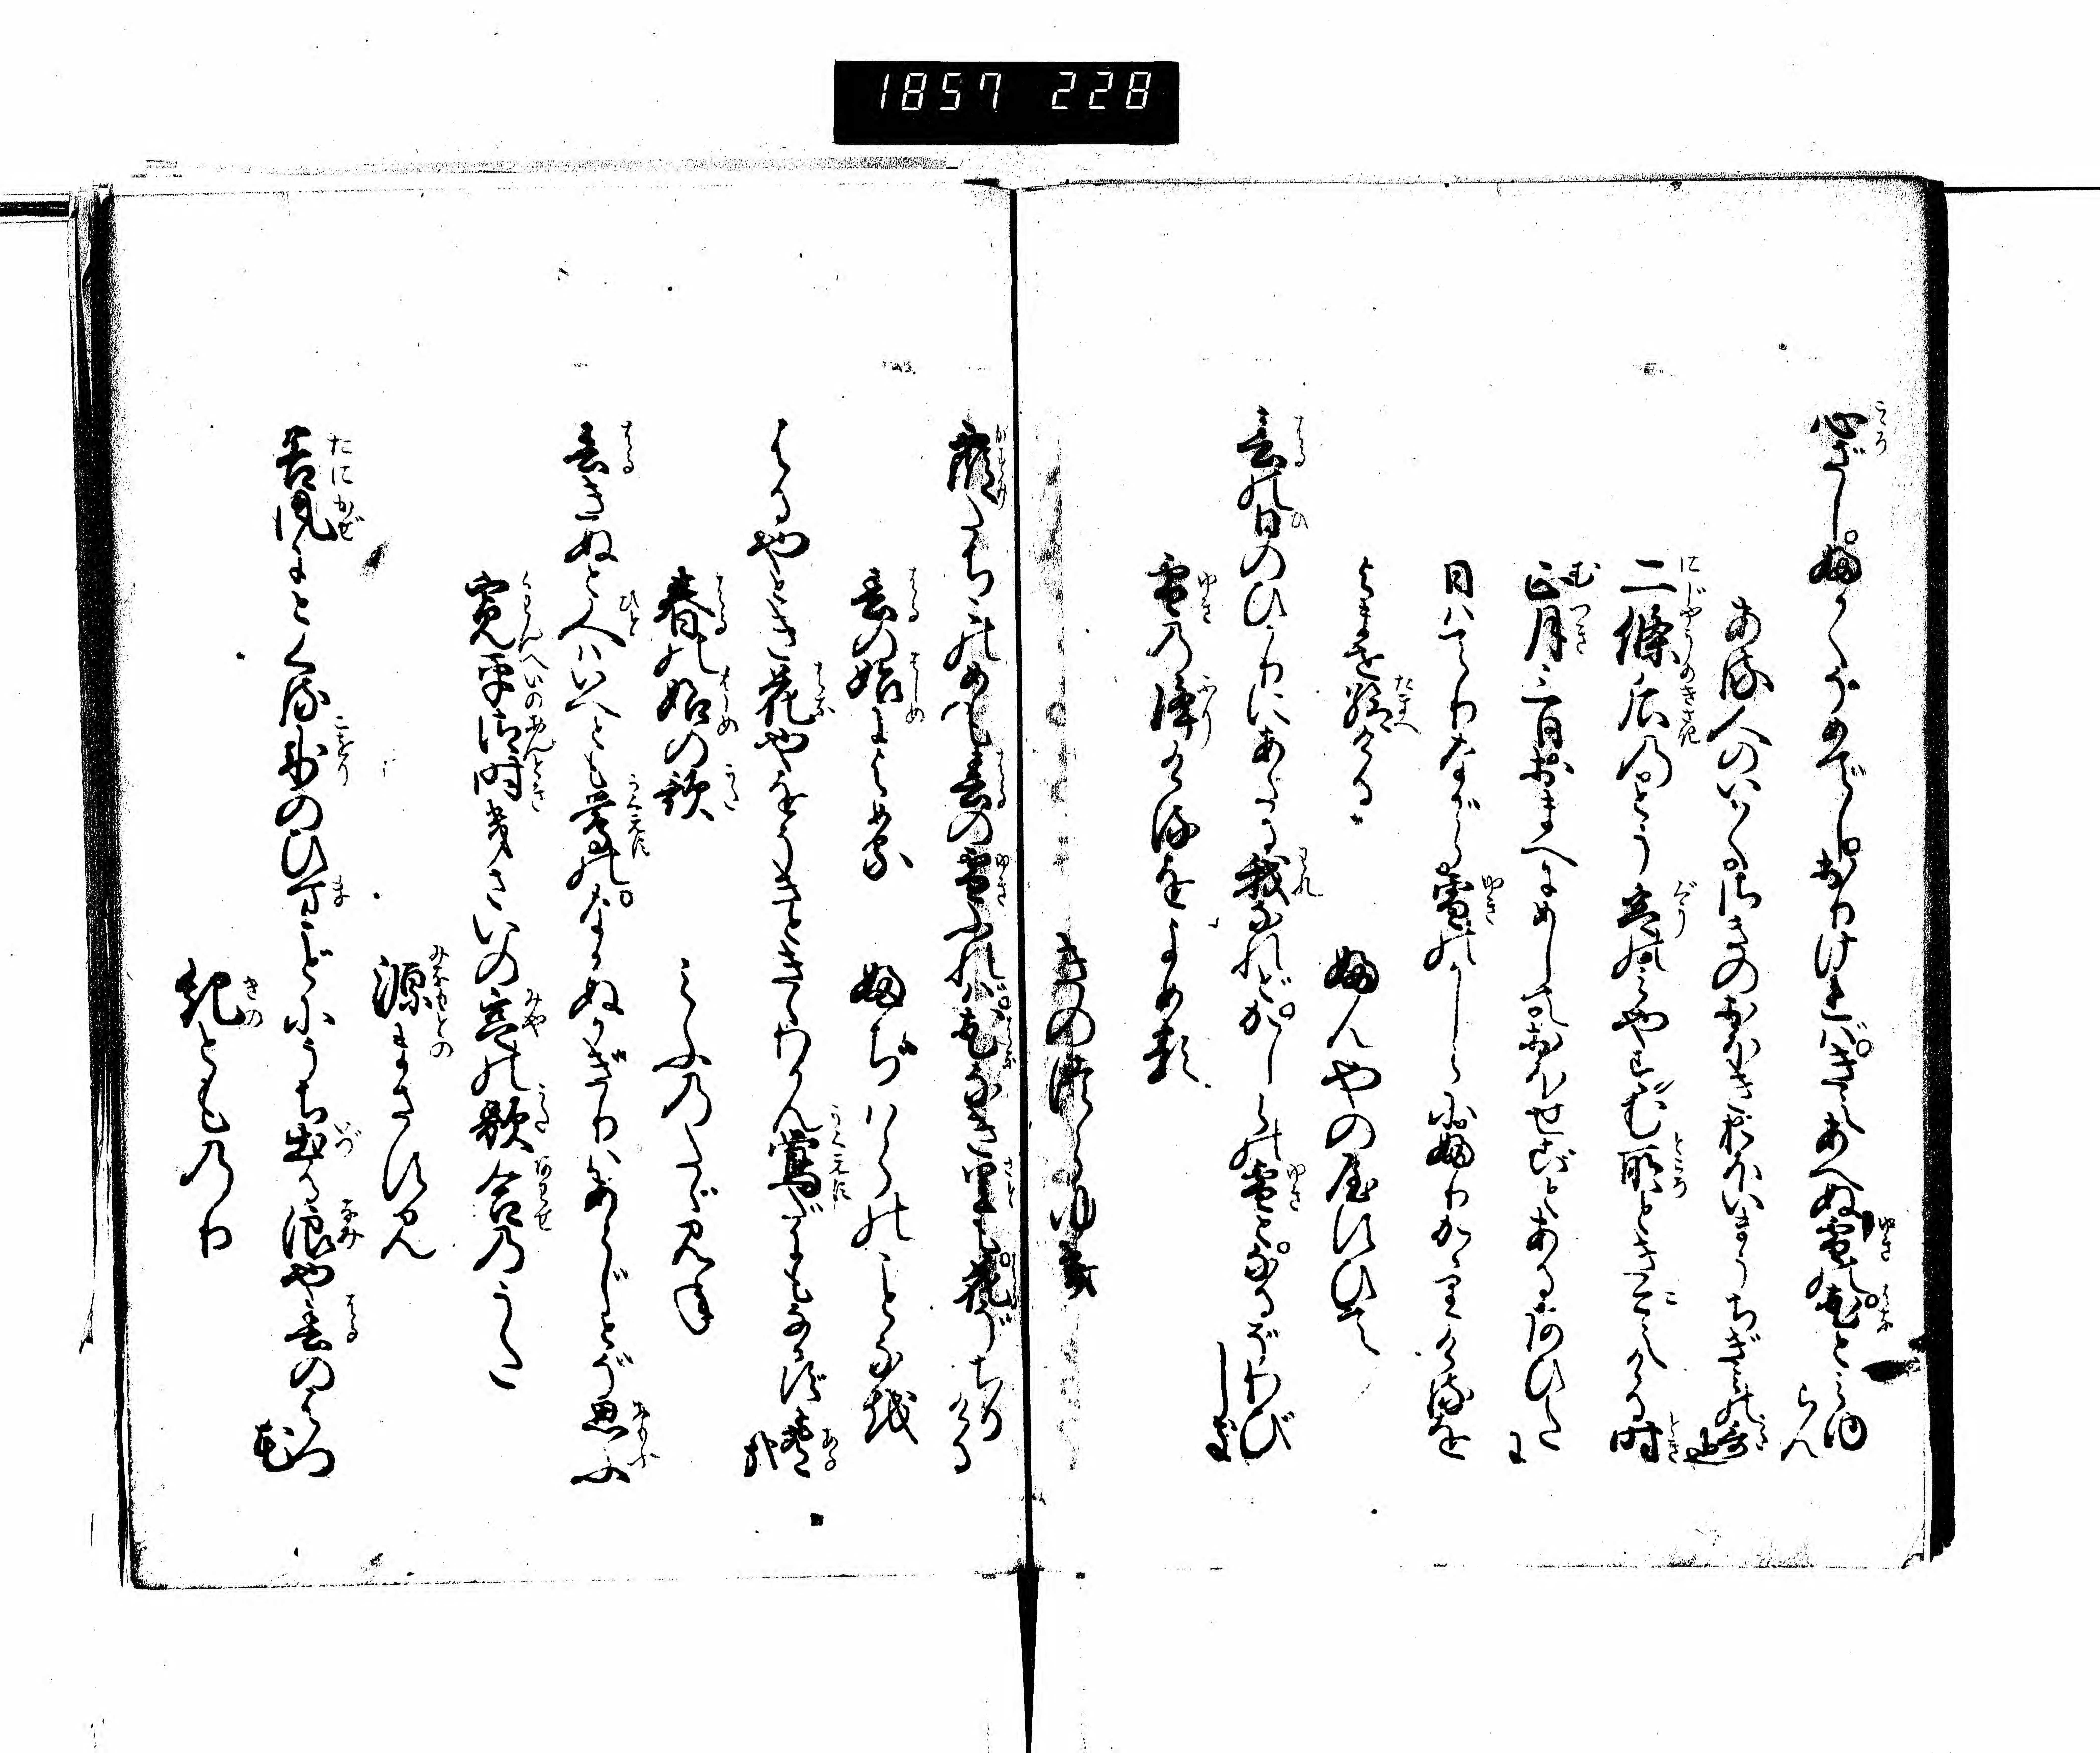 1857 228
心ざしふかくそめてしおりければきえあへぬ雪の花と見ゆらん
ある人のいはくさきのおほきおほいまうちぎみの哥也
二條后のとう宮のみやすむ所ときこえける時
正月三日おまへにめしておほせごとあるあひだに
日はてりながら雪のかしらにふりかゝりけるを
よませ給ける
ふんやの屋すひて
春の日のひかりにあたる我なれどかしらの雪となるぞわびしき
雪の降けるをよめる
きのつらゆき
霞たちこのめも春の雪ふれば花なき里も花ぞちりける
春の始によめる
ふぢはらのことなを
はるやとき花やをそきときゝわかん鶯だにもなかずも有哉
春の始の歌
みぶのたゞみね
春きぬと人はいへども鶯のなかぬかぎりはあらじとぞ思ふ
寛平御時きさいの宮の歌合のうた
源まさずみ
谷風にとくる氷のひまごとにうち出る浪や春のはつ花
紀とものり